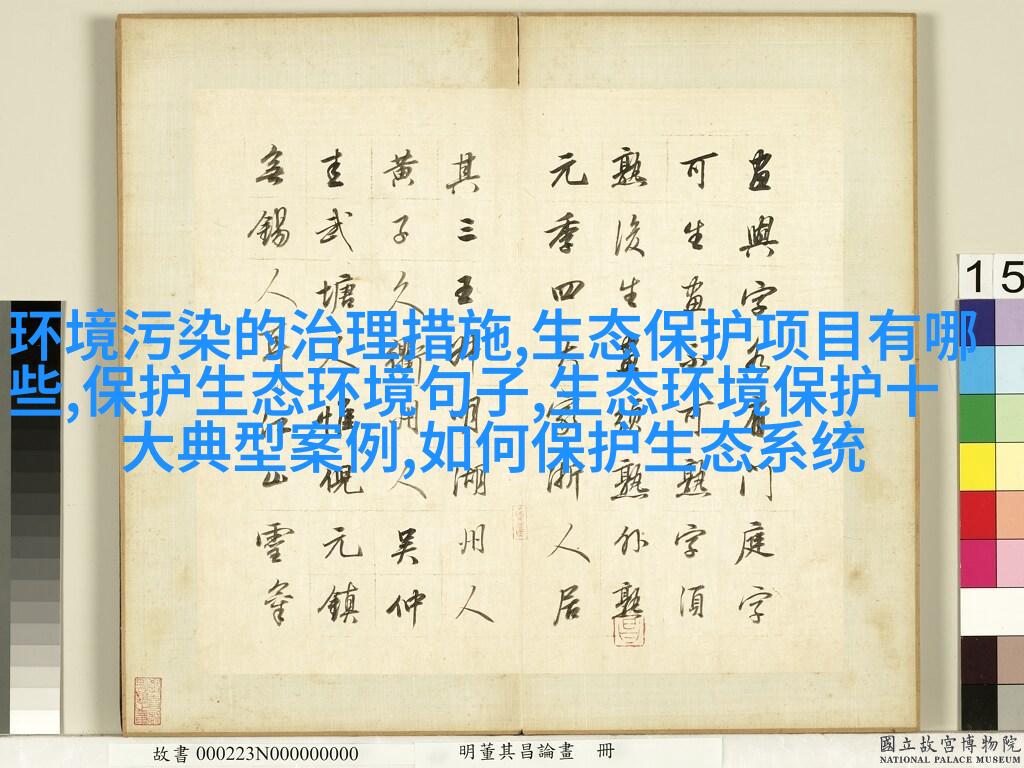 环境污染的治理措施,生态保护项目有哪
些,保护生态环境句子,生态环境保护十
大典型案例,如何保护生态系统
畫與字各有門庭字
可生畫不可熟字須
熟後生畫須熟外熟
元季四大家浙人居
其三王叔明湖州人
黃子久衢州人吳仲
圭武塘人惟倪元鎮
無錫人耳江山靈氣
15
故書 000223N000000000
明董其昌論畫 冊
國立故宮博物院
NATIONAL PALACE MUSEUM